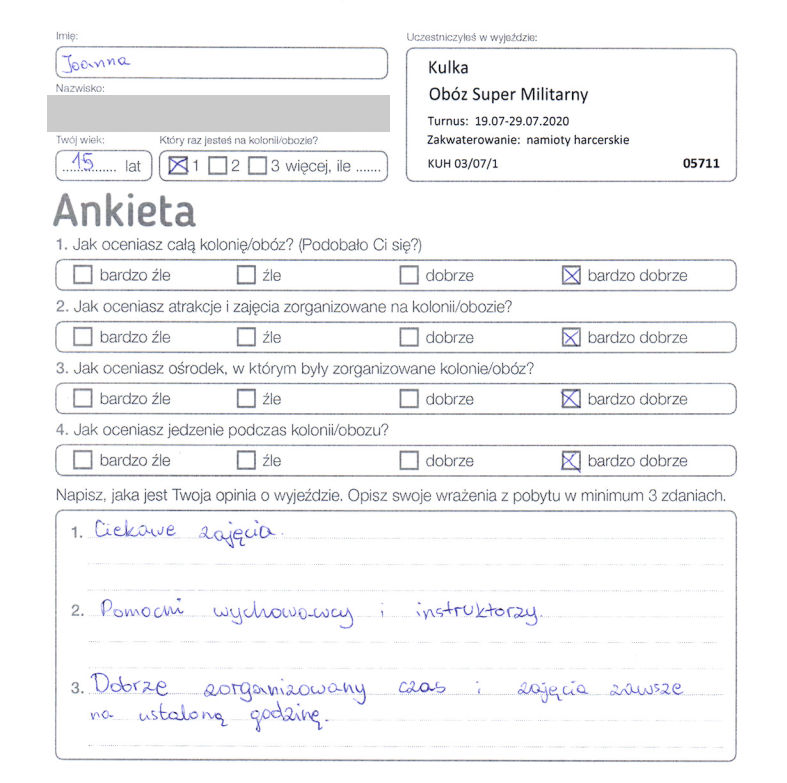 Imię:
Joanna
Nazwisko:
Twój wiek:
15 lat
Który raz jesteś na kolonii/obozie?
1 2 3 więcej, ile .......
Uczestniczyłeś w wyjeździe:
Kulka
Obóz Super Militarny
Turnus: 19.07-29.07.2020
Zakwaterowanie: namioty harcerskie
KUH 03/07/1 05711
Ankieta
1. Jak oceniasz całą kolonię/obóz? (Podobało Ci się?)
bardzo źle źle dobrze bardzo dobrze
2. Jak oceniasz atrakcje i zajęcia zorganizowane na kolonii/obozie?
bardzo źle źle dobrze bardzo dobrze
3. Jak oceniasz ośrodek, w którym były zorganizowane kolonie/obóz?
bardzo źle źle dobrze bardzo dobrze
4. Jak oceniasz jedzenie podczas kolonii/obozu?
bardzo źle źle dobrze bardzo dobrze
Napisz, jaka jest Twoja opinia o wyjeździe. Opisz swoje wrażenia z pobytu w minimum 3 zdaniach.
1. Ciekawe zajęcia.
2. Pomocni wychowawcy i instruktorzy.
3. Dobrze zorganizowany czas i zajęcia zawsze
na ustaloną godzinę.